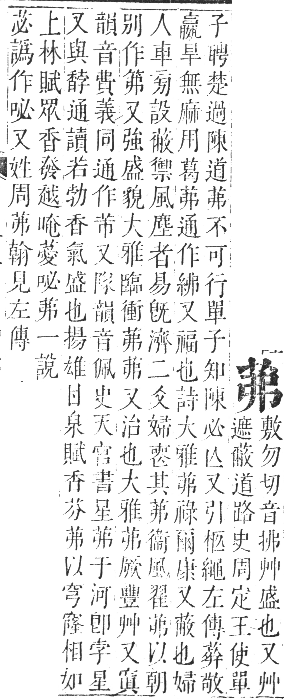 茀敷勿切音拂艸盛也又艸
遮蔽道路史周定王使單
子聘楚過陳道茀不可行單子知陳必亾又引柩繩左傳葬敬
嬴旱無麻用葛茀通作紼又福也詩大雅茀祿爾康又蔽也婦
人車旁設蔽禦風塵者易旣濟二爻婦喪其茀衞風翟茀以朝
別作笰又強盛貌大雅臨衝茀茀又治也大雅茀厥豐艸又寘
韻音費義同通作芾又隊韻音佩史天官書星茀于河卽孛星
又與馞通讀若勃香氣盛也揚雄甘泉賦香芬茀以穹隆相如
上林賦眾香發越晻薆咇茀一說
苾譌作咇又姓周茀翰見左傳